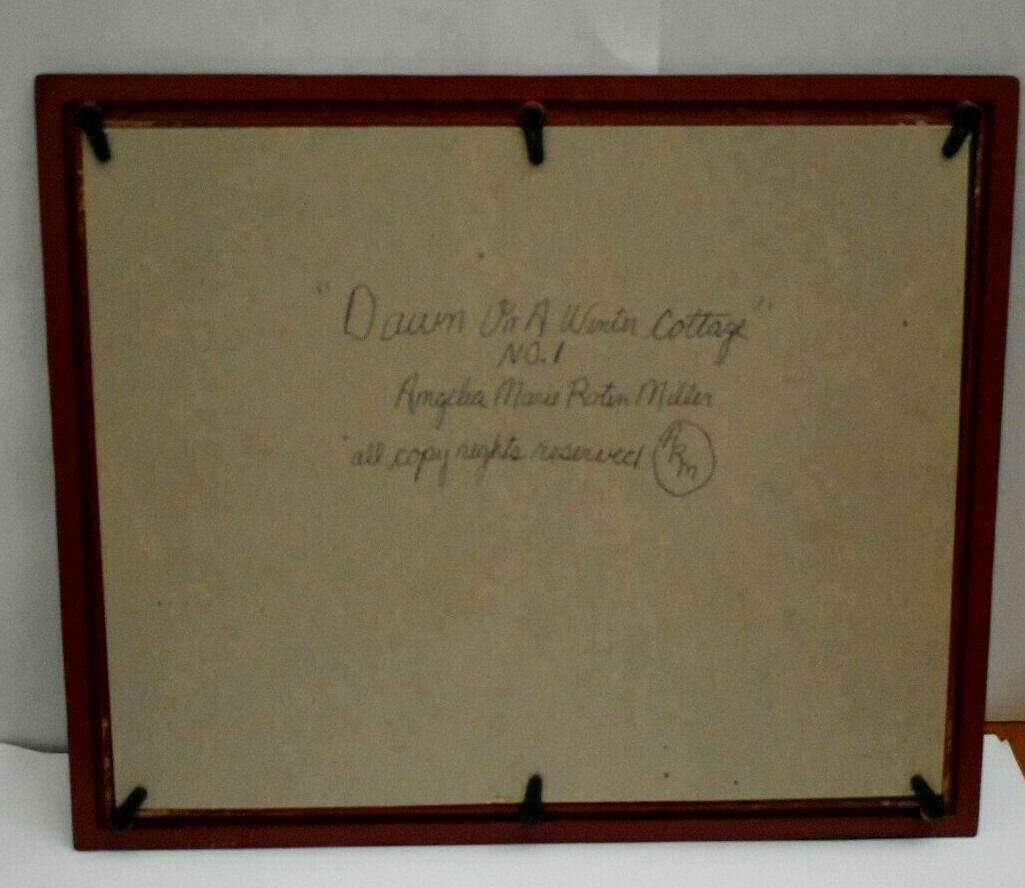 "Dawn On A Winter Cottage"
NO. 1
Angelia Marie Roten Miller
all copy rights reserved ARM